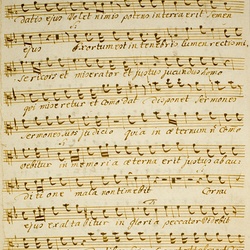 datio ejus Volet nimio potens in terra erit semen
ejus Exortum est in tenebris lumen rectis mi
sericors et miserator et justus jucundus homo
qui miseretur et comodat disponet Sermones
sermones suos judicio quia in aeternum como
vebitur in memoria aeterna erit justus ab au
ditione mala non timebit Cornu
ejus exaltabitur in gloria peccator videbit